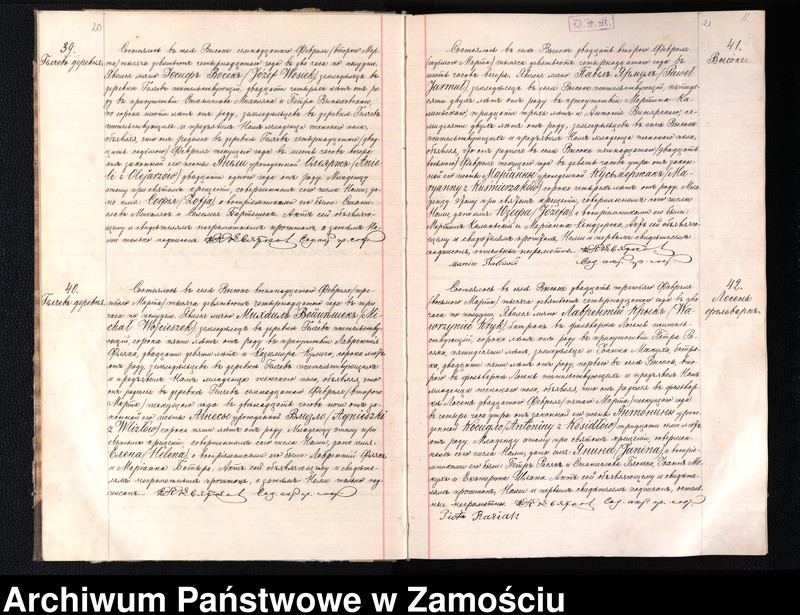 20
39.
Гилевъ деревня.
Состоялось въ селѣ Высокое семнадцатаго Февраля /второго Мар-
та/ тысяча девятьсотъ четырнадцатаго года въ два часа по полудни.
Явился лично Іосифъ Восекъ /Józef Wosiek/, земледѣлецъ въ
жительствующій, двадцати четырехъ лѣтъ отъ ро-
ду въ присутствіи Станислава Михаляка и Петра
лѣтъ отъ роду, земледѣльцевъ въ деревнѣ
жительствующихъ и предъявилъ Намъ младенца женскаго пола,
объявляя, что онъ родился въ деревнѣ четырнадцатаго /два-
дцать седьмого/ Февраля текущаго года въ шесть часовъ вечера
отъ законной его жены Анели урожденной Олеяржъ /Anie-
li z Olejarzów/ двадцати одного года отъ роду. Младенцу
этому при святомъ крещеніи, совершенномъ сего числа Нами, да-
но имя Софія /Zofja/, а воспріемниками его были: Стани-
славъ Михалякъ и Актъ сей объявляю-
щему и свидѣтелямъ неграмотнымъ прочитанъ, а затѣмъ На-
ми только подписанъ.
40.
Гилевъ деревня.
Состоялось въ селѣ Высокое восемнадцатаго Февраля /тре-
тьяго Марта/ тысяча девятьсотъ четырнадцатаго года въ три
часа по полудни. Явился лично Михаилъ Войцѣшекъ /Mi-
chał Wojcieszek/, земледѣлецъ въ деревнѣ жительству-
ющій, сорока пяти лѣтъ отъ роду въ присутствіи Лаврентія
двадцати девяти лѣтъ и Казимира сорока
отъ роду, земледѣльцевъ въ деревнѣ жительствующихъ
и предъявилъ Намъ младенца женскаго пола, объявляя, что
онъ родился въ деревнѣ семнадцатаго Февраля /второго
Марта/ текущаго года въ двѣнадцать часовъ ночи отъ за-
конной его жены Агнесы урожденной Влизло /Agnieszki
z Wlizłów/ сорока пяти лѣтъ отъ роду. Младенцу этому при
святомъ крещеніи совершенномъ сего числа Нами, дано имя
Елена /Helena/, а воспріемниками его были: Лаврентій
и Маріанна Актъ сей объявляющему и свидѣте-
лямъ неграмотнымъ прочитанъ, а затѣмъ Нами только под-
писанъ.
21
11.
41.
Высокое.
Состоялось въ селѣ Высокое двадцать второго Февраля
/седьмого Марта/ тысяча девятьсотъ четырнадцатаго года въ
шесть часовъ вечера. Явился лично Павелъ Ярмулъ /Paweł
Jarmuł/, земледѣлецъ въ селѣ Высокое жительствующій, пятиде-
сяти двухъ лѣтъ отъ роду въ присутствіи Мартина Ка-
линовскаго, тридцати трехъ лѣтъ и Антонія Винярскаго, се-
мидесяти двухъ лѣтъ отъ роду, земледѣльцевъ въ селѣ Высокое
жительствующихъ и предъявилъ Намъ младенца женскаго пола,
объявляя, что онъ родился въ селѣ Высокое пятнадцатаго /двадцать
восьмого/ Февраля текущаго года въ девять часовъ утра отъ закон-
ной его жены Маріанны урожденной Кусьмерчакъ /Ma-
ryanny z Kuśmierczaków/ сорока четырехъ лѣтъ отъ роду. Мла-
денцу этому при святомъ крещеніи, совершенномъ сего числа
Нами, дано имя Юзефа /Józefa/, а воспріемниками его были:
Мартинъ Калиновскій и Маріанна Актъ сей объявляю-
щему и свидѣтелямъ прочитанъ, Нами и первымъ свидѣтелемъ
подписанъ, остальные неграмотны.
42.
Лосень
фольваркъ.
Состоялось въ селѣ Высокое двадцать третьяго Февраля
/восьмого Марта/ тысяча девятьсотъ четырнадцатаго года въ два
часа по полудни. Явился лично Лаврентій Крыкъ /Wa-
wrzyniec Kryk/, батракъ въ фольваркѣ Лосень житель-
ствующій, сорока лѣтъ отъ роду въ присутствіи Петра Ра-
сяка, пятидесяти лѣтъ, земледѣльца и
двадцати пяти лѣтъ отъ роду, перваго въ селѣ Высокое, вто-
рого въ фольваркѣ Лосень жительствующихъ и предъявилъ Намъ
младенца женскаго пола, объявляя, что онъ родился въ фольвар-
кѣ Лосень двадцатаго Февраля /пятаго Марта/ текущаго года
въ четыре часа утра отъ законной его жены Антонины урож-
денной Косидло /Antoniny z Kosidłów/ тридцати семи лѣтъ
отъ роду. Младенцу этому при святомъ крещеніи, совершен-
номъ сего числа Нами, дано имя Янина /Janina/, а воспрі-
емниками его были: Петръ Расякъ и Станислава
и Екатерина Актъ сей объявляющему и свидѣте-
лямъ прочитанъ, Нами и первымъ свидѣтелемъ подписанъ, осталь-
ные неграмотны.
Piotr Rasiak
Archiwum Państwowe w Zamościu